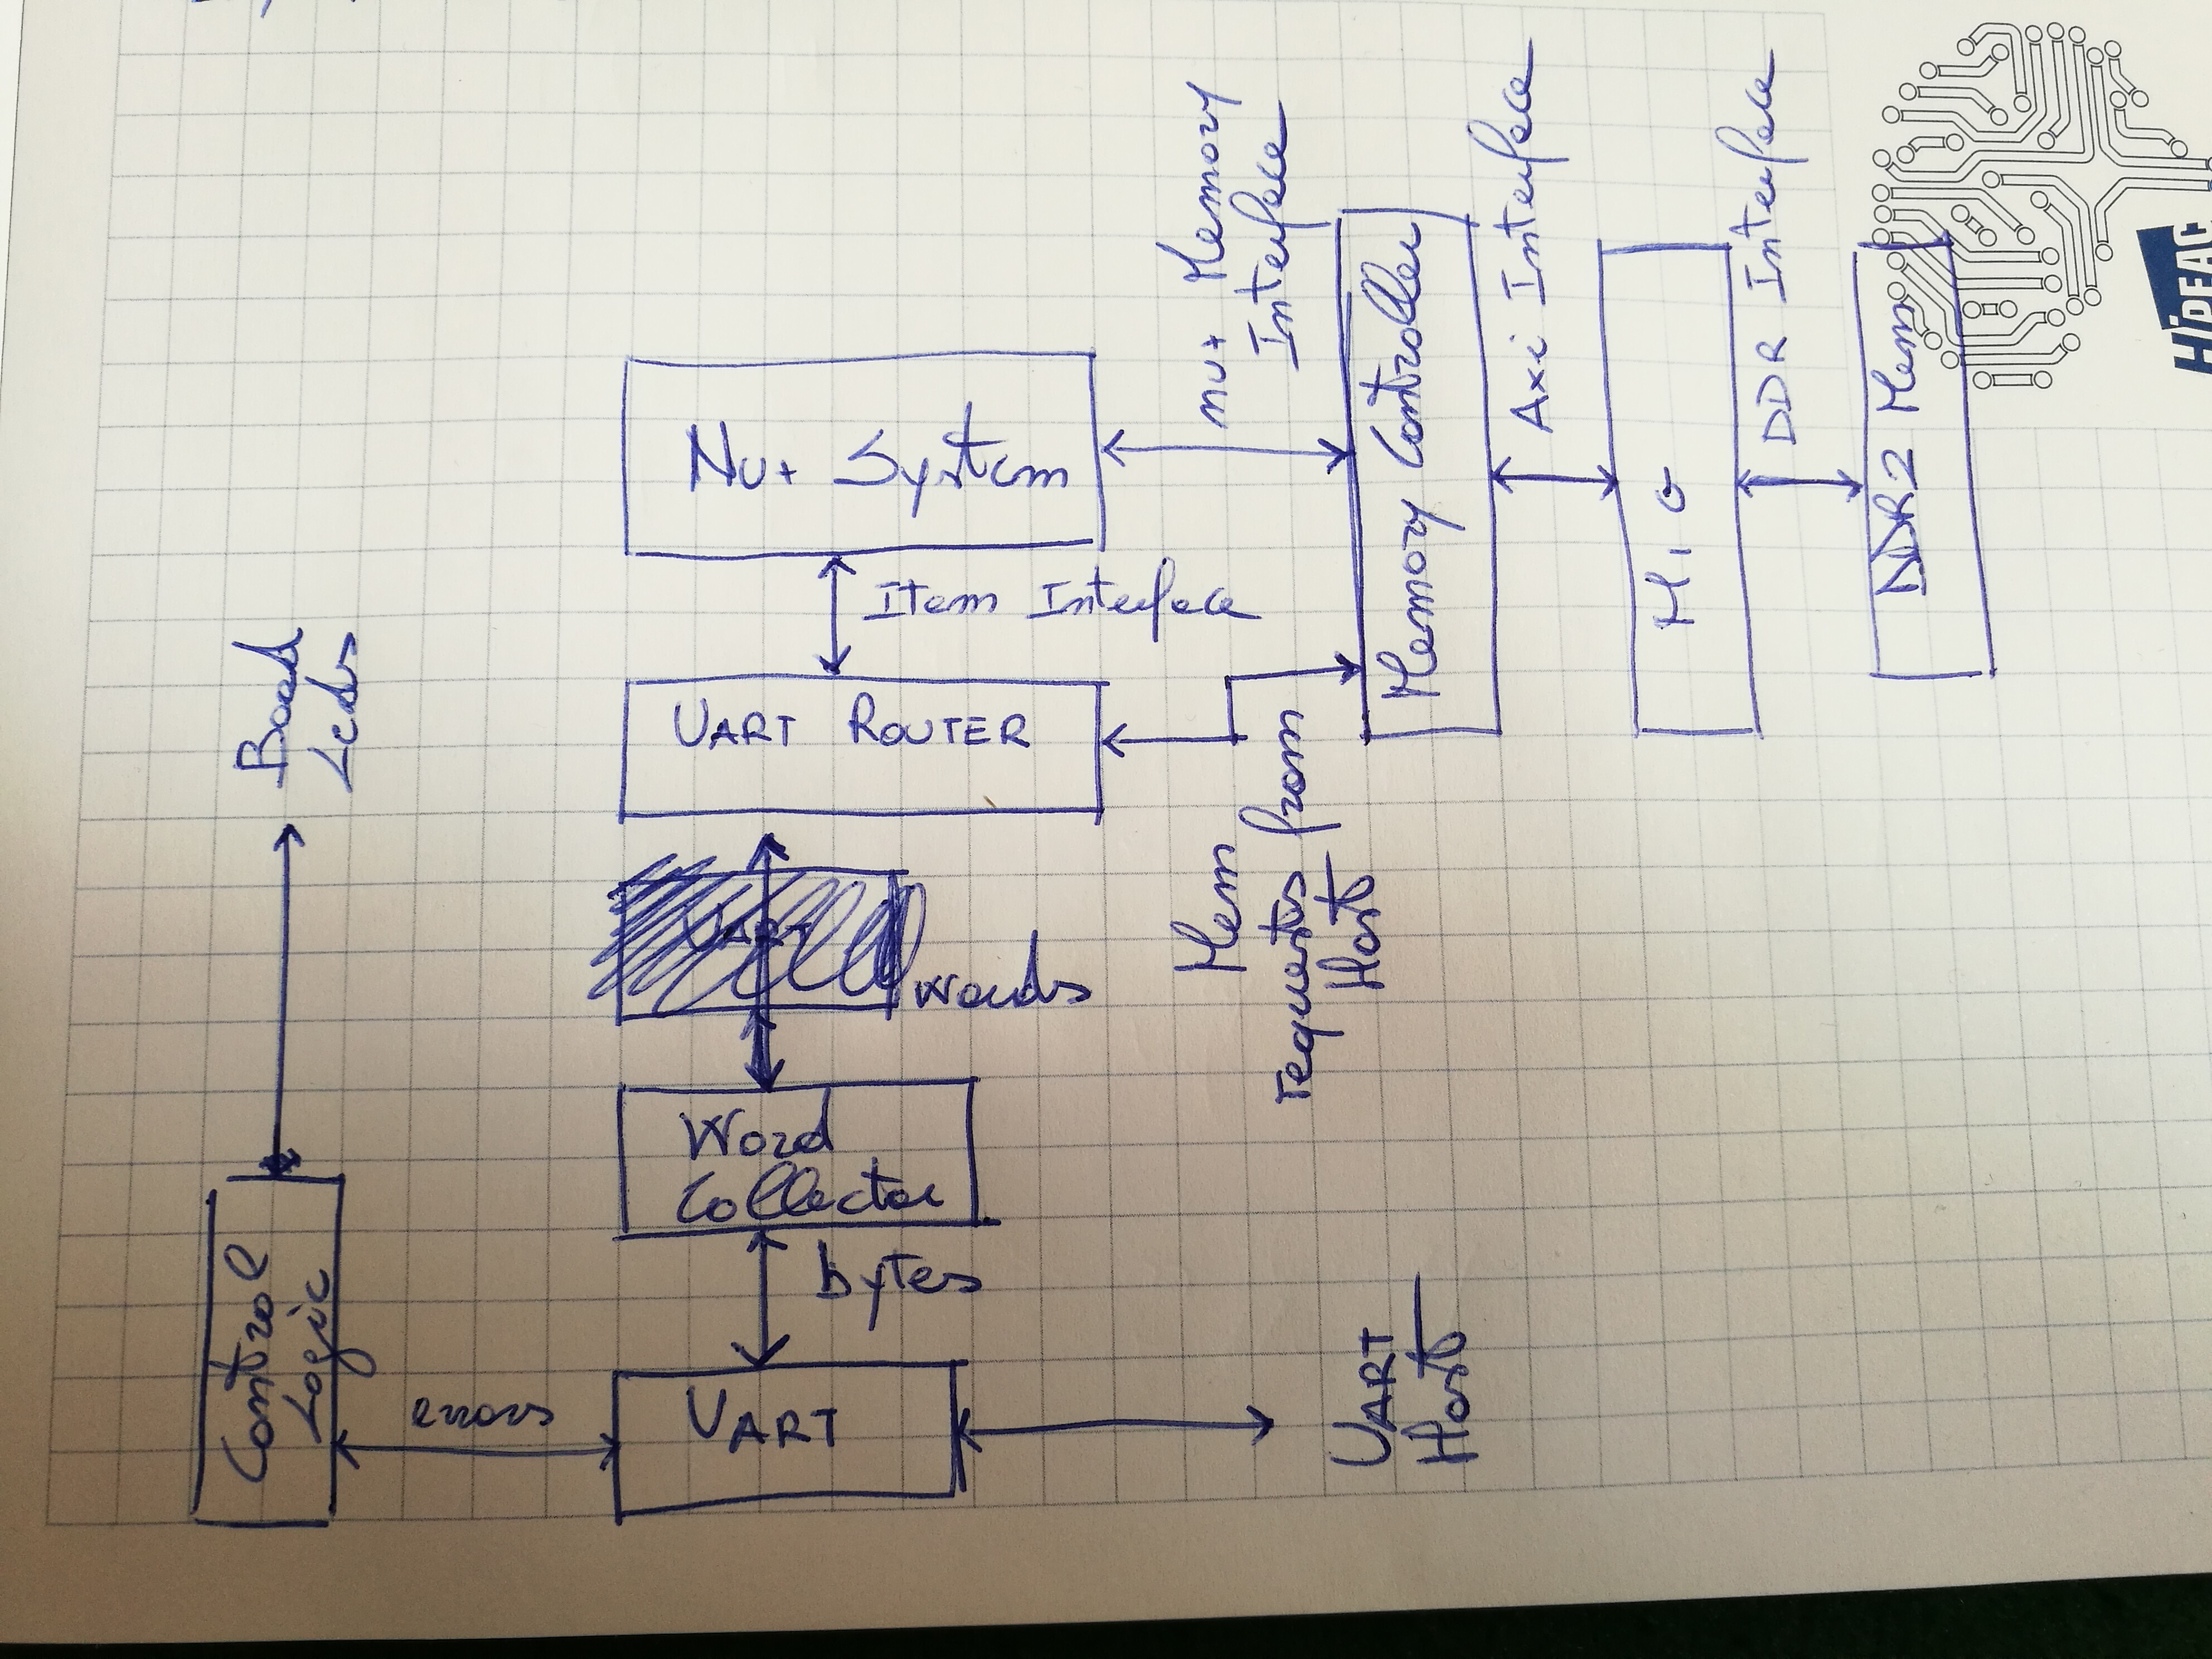 Board
Leds
Control
Logic
errors
Nu+ System
Item Interface
UART ROUTER
UART
words
Word
Collector
bytes
UART
UART
Host
nu+ Memory
Interface
Mem
requests from
Host
Memory Controller
Axi Interface
MIG
DDR Interface
DDR2 Mem
HiPEAC